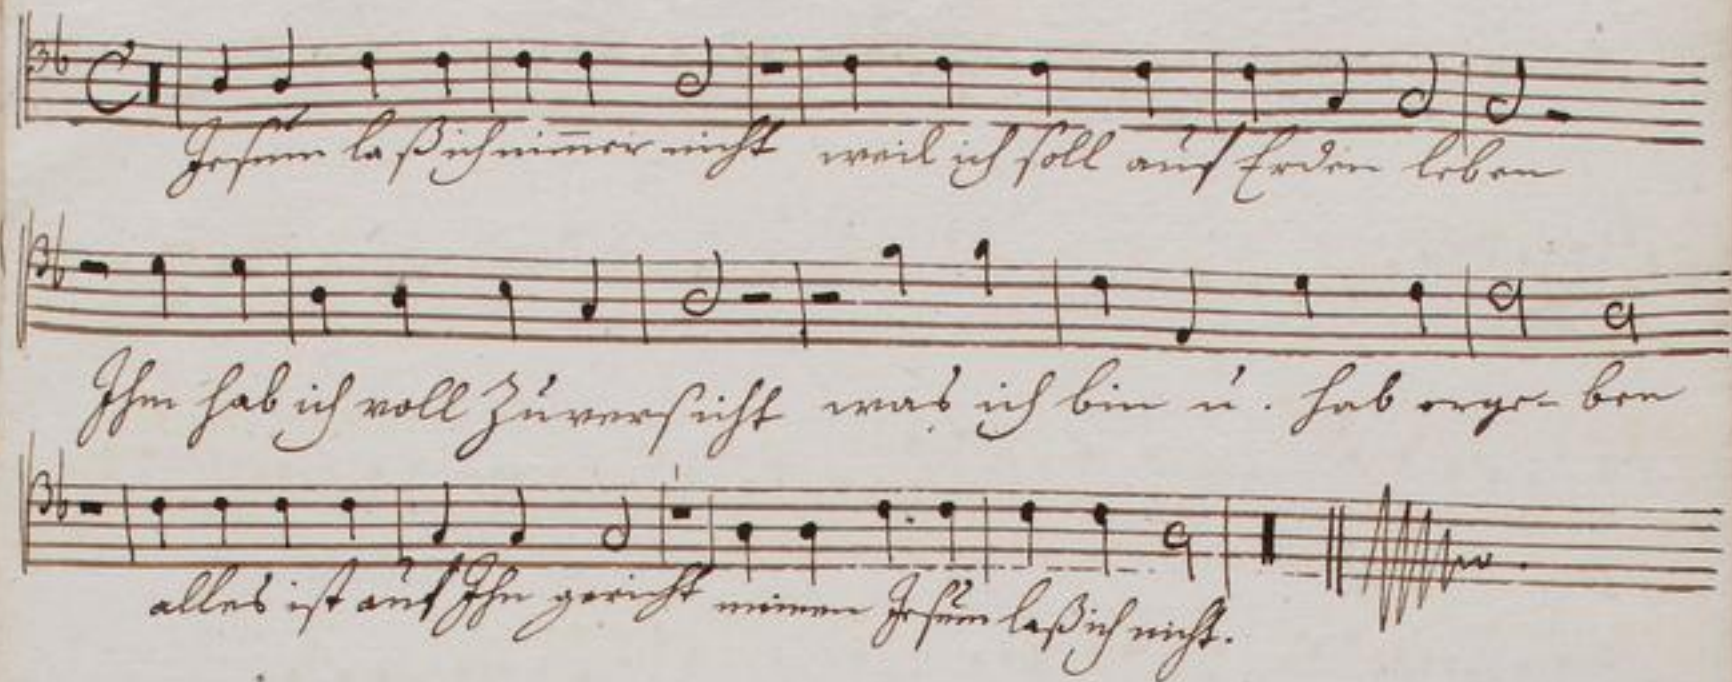 Jesum laß ich nim̅er nicht weil ich soll auf Erden leben
Ihm hab ich voll Zuversicht was ich bin u. hab erge- ben
alles ist auf Ihn gericht meinen Jesum laß ich nicht.